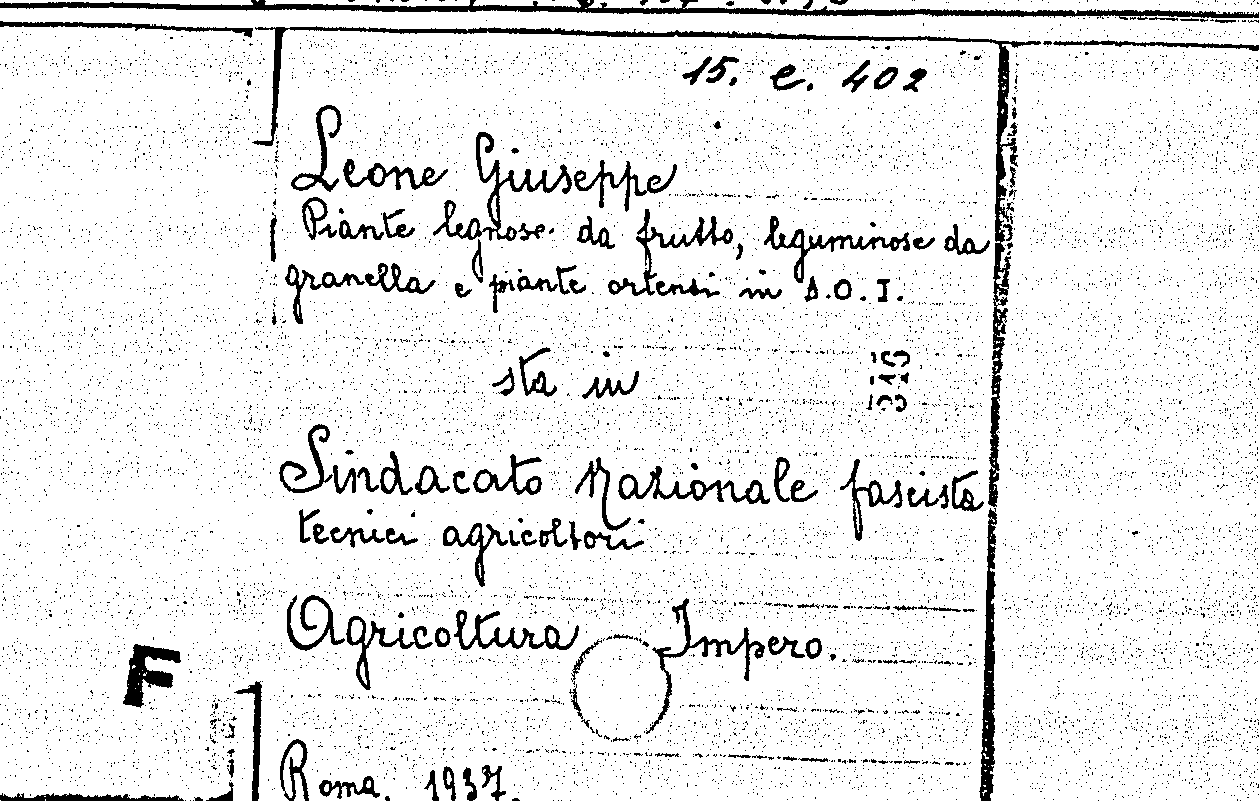 15. e. 402
Leone Giuseppe
Piante legnose da frutto, leguminose da
granella e piante ortensi in A.O.I.
sta in
315
Sindacato Nazionale fascista
tecnici agricoltori
Agricoltura Impero.
F
Roma. 1937.